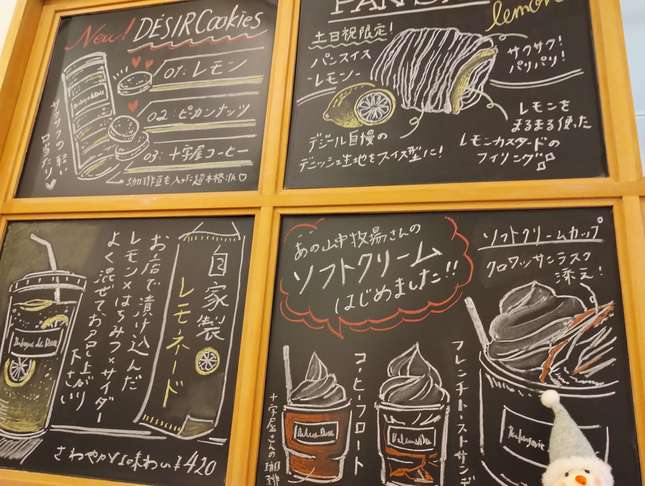 New! DÉSIR Cookies
01: レモン
02: ピーカンナッツ
03: 十字屋コーヒー
サクサクの軽い
口当たり♡
珈琲豆を入った超本格派♡
PAN SU
lemon
土日祝限定!
パンスイス
-レモン-
サクサク!
パリパリ!
デジール自慢の
デニッシュ生地をスイス型に!
レモンを
まるまる使った
レモンカスタードの
フィリング♪
自家製
レモネード
お店で漬け込んだ
レモン×はちみつ×サイダー
よく混ぜてお召し上がり
下さい
さわやかな味わい ¥420
あの山中牧場さんの
ソフトクリーム
はじめました!!
ソフトクリームカップ
クロワッサンラスク
添え!
コーヒーフロート
十字屋さんの珈琲
フレンチトーストサンデ